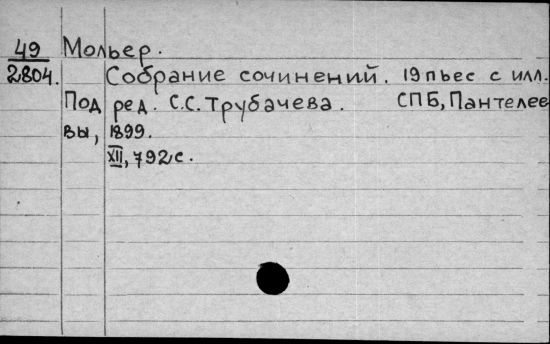 49 Мольер.
2804. Собрание сочинений. 19 пьес с илл.
Под ред. С.С. Трубачева. СПБ, Пантелее
вы, 1899.
XII, 792 с.